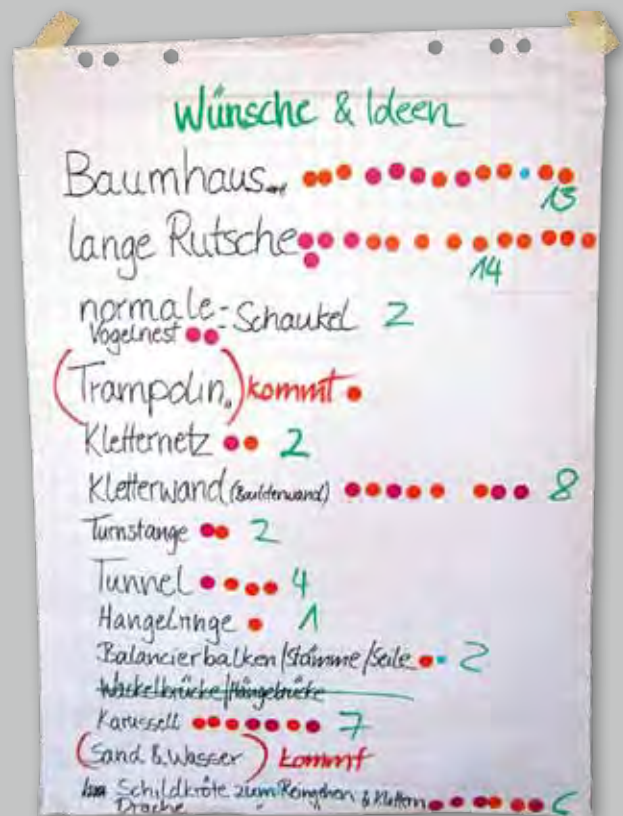 Wünsche & Ideen
Baumhaus
13
lange Rutsche
14
normale-Schaukel 2
Vogelnest
(Trampolin) kommt
Kletternetz 2
Kletterwand (Boulderwand) 8
Turnstange 2
Tunnel 4
Hangelringe 1
Balancierbalken/Stämme/Seile 2
Wackelbrücke/Hängebrücke
Karussell 7
(Sand & Wasser) kommt
Schildkröte zum Reingehen & Klettern
Drache